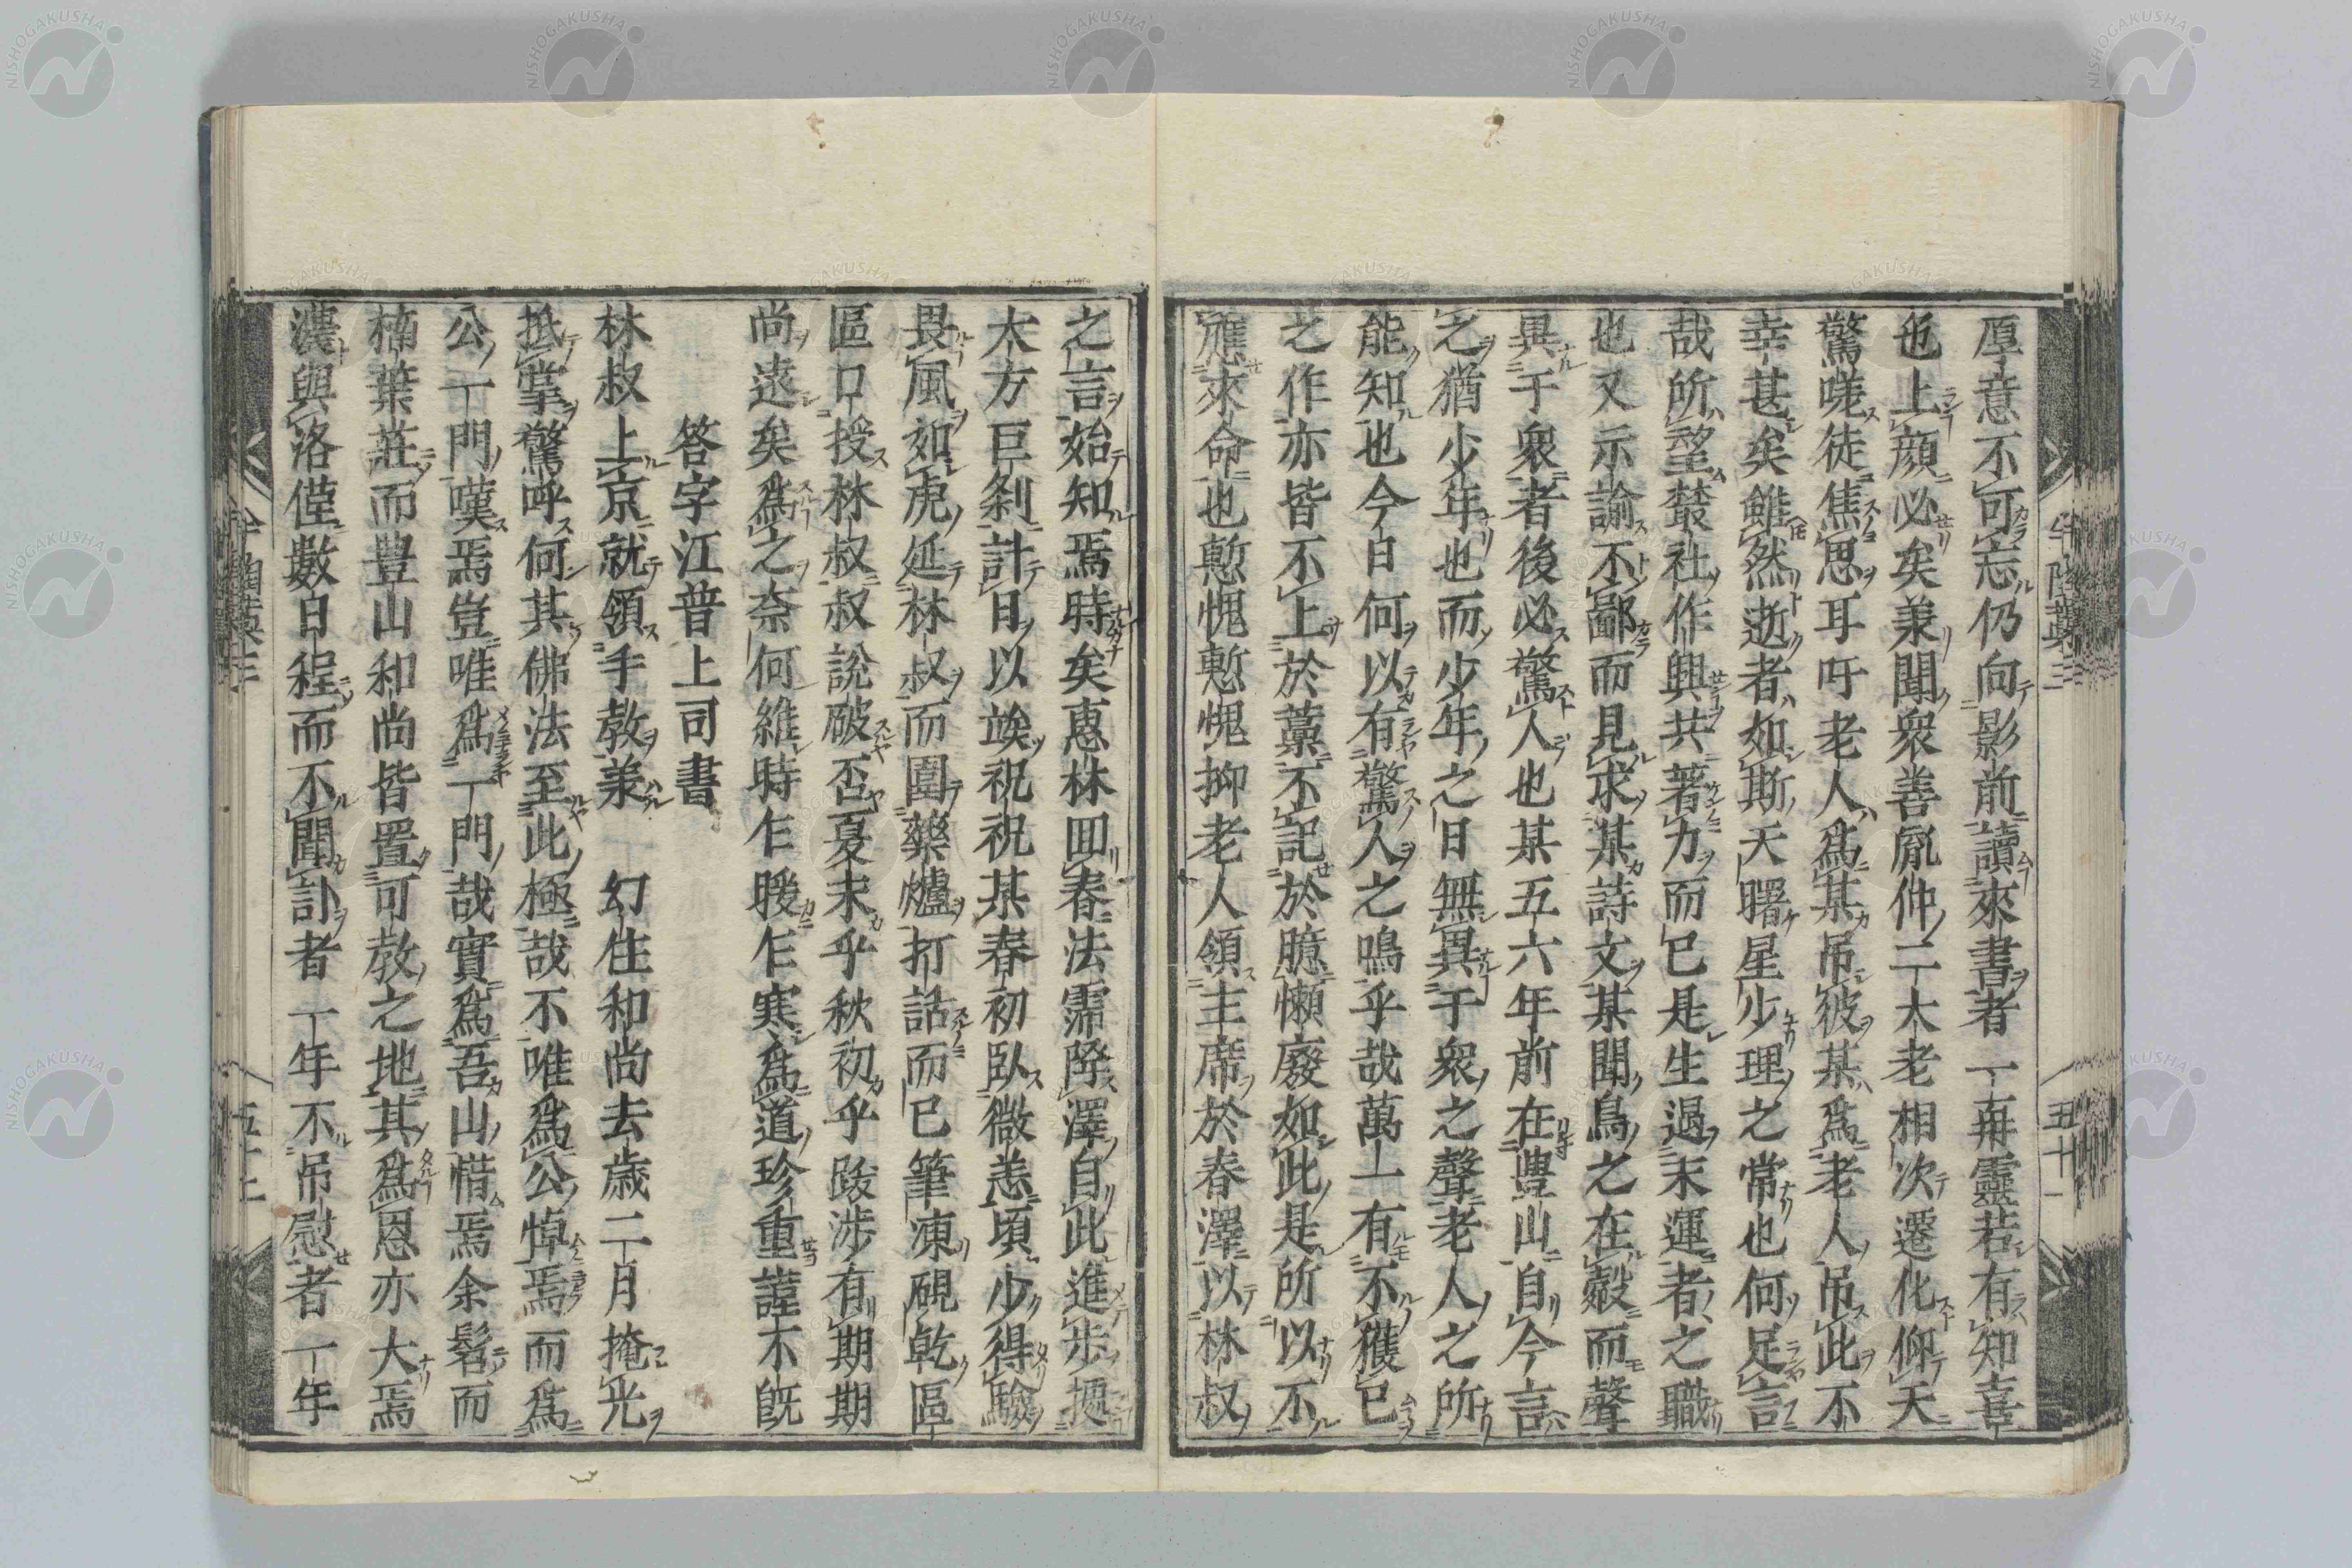 厚意不可忘仍向影前讀來書者一再靈若有知喜
也上顔必矣兼聞衆善胤仲二大老相次遷化仰天
驚嗟徒焦思耳吁老人爲某吊彼某爲老人吊此不
幸甚矣雖然逝者如斯天曙星少理之常也何足言
哉所望叢社作興共著力而已是生過末運者之職
也又示諭不鄙而見求某詩文某聞鳥之在㲉而聲
異于衆者後必驚人也某五六年前在豊山自今言
之猶少年也而少年之日無異于衆之聲老人之所
能知也今日何以有驚人之鳴乎哉萬一有不獲已
之作亦皆不上於藁不記於臆懶廢如此是所以不
應來命也慙愧慙愧抑老人領主席於春澤以林叔
之言始知焉時矣惠林回春法霈降澤自此進步擾
太方巨刹計日以竢祝祝某春初臥微恙頃少得驗
畏風如虎延林叔而圍藥爐打話而已筆凍硯乾區
區口授林叔叔說破否夏末乎秋初乎跋涉有期期
尚遠矣爲之奈何維時乍暖乍寒爲道珍重謹不旣
答字江普上司書
林叔上京就領手敎兼 幻住和尚去歳二月掩光
抵掌驚呼何其佛法至此極哉不唯爲公悼焉而爲
公一門嘆焉豈唯爲一門哉實爲吾山惜焉余髫而
楠葉莊而豊山和尚皆置可敎之地其爲恩亦大焉
濃與洛僅數日程而不聞訃者一年不吊慰者一年